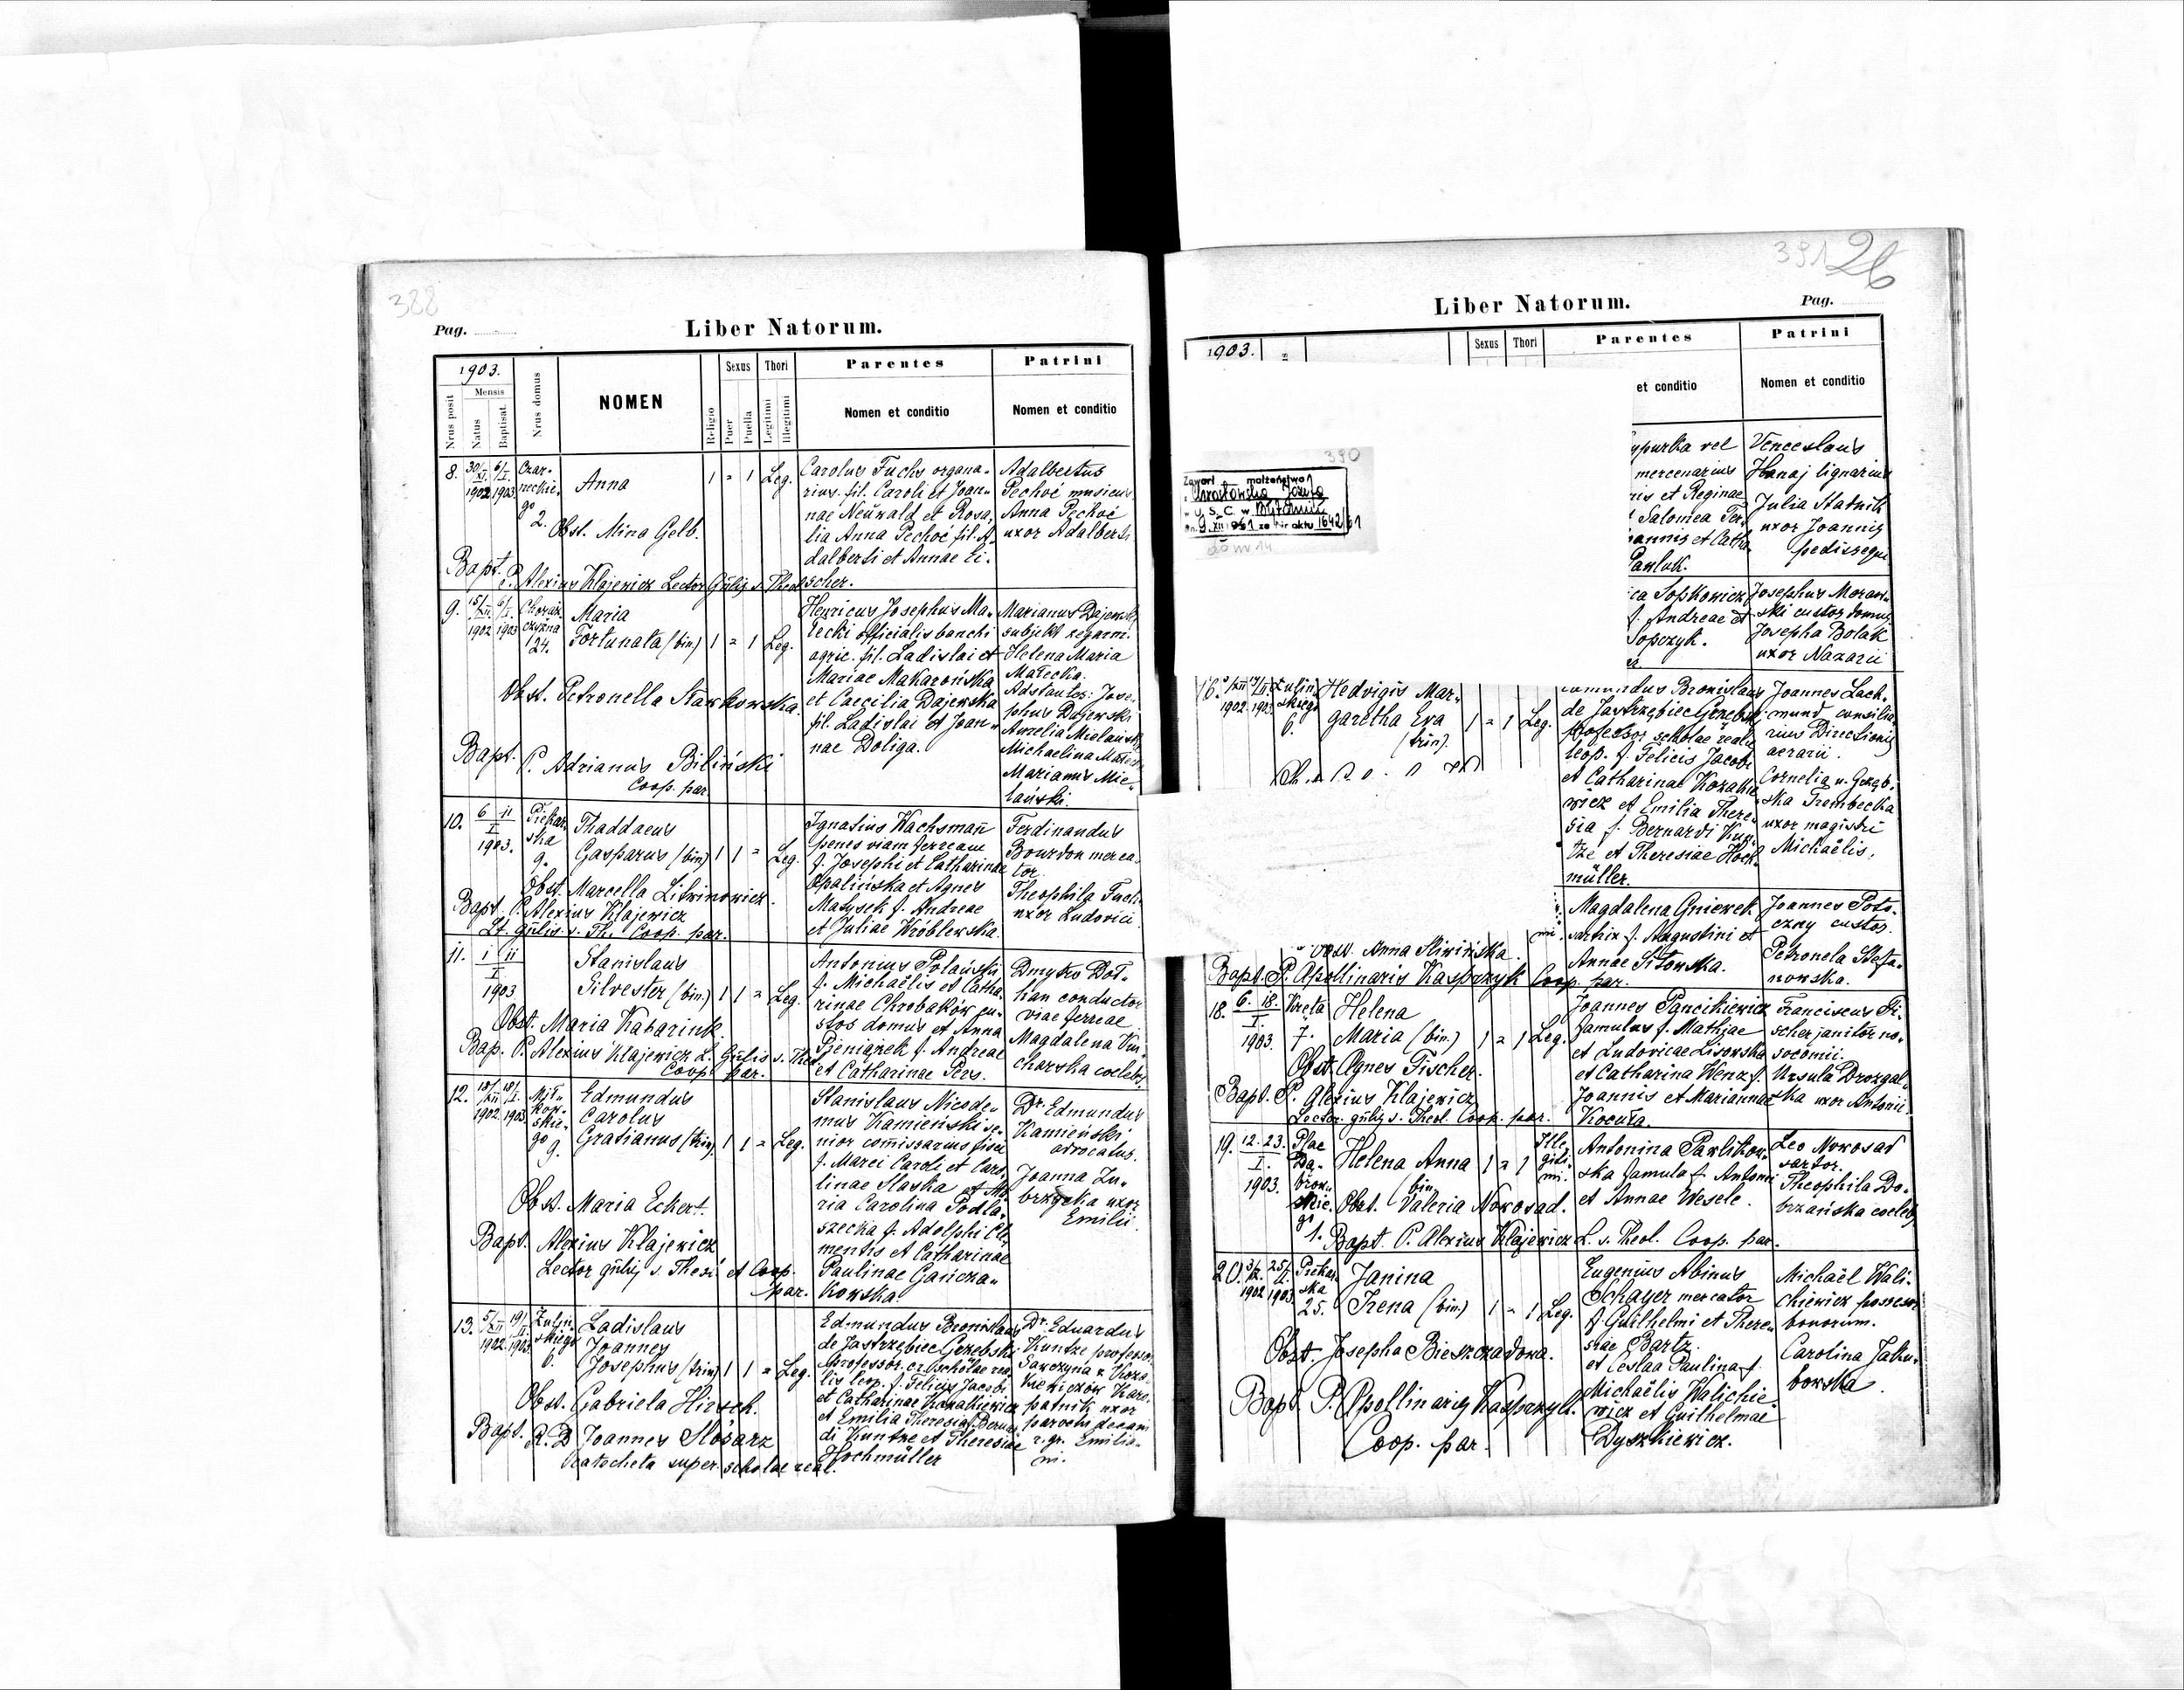 388
Pag.
Liber Natorum.
1903.
Nrus posit
Mensis
Natus
Baptisat.
Nrus domus
NOMEN
Religio
Sexus
Puer
Puella
Thori
Legitimi
Illegitimi
Parentes
Nomen et conditio
Patrini
Nomen et conditio
8. 30/XI 1902 6/I 1903
Czar-
neckie-
go
2.
Anna
1 = 1 Leg.
Obst. Mina Gelb.
Bapt. P. Alexius Klajewicz Lector Gülij s. Theol
Carolus Fuchs organa-
rius fil. Caroli et Joan-
nae Neuwald et Rosa-
lia Anna Pechoč fil. A-
dalberti et Annae Ei-
scher.
Adalbertus
Pechoč musicus
Anna Pechoč
uxor Adalberti
9. 15/XII 1902 6/I 1903
Chorąż
czyzna
24.
Maria
Fortunata (bin.)
1 = 1 Leg.
Obst. Petronella Stawkowska.
Bapt. P. Adrianus Biliński
Coop. par
Henricus Josephus Ma-
łecki officialis banchi
agric. fil. Ladislai et
Mariae Makarońska
et Caecilia Dajewska
fil. Ladislai et Joan-
nae Doliga.
Marianus Dajewski
subjekt zegarm.
Helena Maria
Małecka.
Adstantes: Jose-
phus Dajewski
Aurelia Mielańska
Michaelina
Marianus Mie-
lański.
10. 6 11
I
1903.
Piekar-
ska
9.
Thaddaeus
Gasparus (bin)
1 1 = Leg.
Obst. Marcella Litwinowicz.
Bapt. P. Alexius Klajewicz
Lt. gülis s. Th. Coop. par.
Ignatius Wachsmañ
penes viam ferream
f. Josephi et Catharinae
Opalińska et Agnes
Matysek f. Andreae
et Juliae Wróblewska.
Ferdinandus
Bourdon merca-
tor.
Theophila Fuch
uxor Ludovici
11. 1 11
I
1903
Stanislaus
Silvester (bin.)
1 1 = Leg.
Obst. Maria Katarink.
Bap. P. Alexius Klajewicz L. Gülis s. Theol
Coop. par.
Antonius Polański
f. Michaëlis et Catha-
rinae Chrobaków cu-
stos domus et Anna
Pieniążek f. Andreae
et Catharinae Pers.
Dmytro Doł-
han conductor
viae ferreae
Magdalena Ku-
charska coelebs.
12. 18/XII 1902. 18/I. 1903
Mił-
kow-
skie-
go
9.
Edmundus
Carolus
Gratianus (trin)
1 1 = Leg.
Obst. Maria Eckert.
Bapt. Alexius Klajewicz
Lector gülij s. Thesi et Coop.
par.
Stanislaus Nicode-
mus Kamieński se-
nior comissarius fisci
f. Marci Caroli et Caro-
linae Slaska et Ma-
ria Carolina Podla-
szecka f. Adolphi Cle-
mentis et Catharinae
Paulinae Gańcza-
kowska.
Dr. Edmundus
Kamieński
advocatus.
Joanna Zu-
brzycka uxor
Emilii.
13. 5/XII 1902. 19/II 1903
Zulin-
skiego
6.
Ladislaus
Joannes
Josephus (trin)
1 1 = Leg.
Obst. Gabriela Hirsch.
Bapt. R. D Joannes Slósarz
Catecheta super. scholae real.
Edmundus Bronislaus
de Jastrzębiec Grzębski
professor c.r. scholae rea-
lis leop. f. Felicis Jacobi
et Catharinae Kozakiewicz
et Emilia Theresia f. Bernar-
di Kuntze et Theresiae
Hochmüller
Dr. Eduardus
Kuntze professor
Sawczyna z Koza-
kiewiczów Kara-
patnik uxor
parochi decani
r. gr. Emilia-
ni.
391 26
Liber Natorum.
Pag.
1903.
Sexus
Thori
Parentes
et conditio
Patrini
Nomen et conditio
390
Zawarł małżeństwo
Józefa
w U.S.C. w Bytomiu
dn. 9 XII 1961 za Nr aktu 1642/61
ypurka vel
mercenarius
nis et Reginae
Salomea Fer-
oannis et Catha-
Pawluk.
Venceslaus
Hanaj lignarius
Julia Statnik
uxor Joannis
pedissequi
ca Sopkowicz
f. Andreae et
Sopczyk.
Josephus Moraw-
ski custos domus
Josepha Bolak
uxor Nazarii
16. 5/XII 1902. 19/II 1903
Zulin-
skiego
6.
Hedvigis Mar-
garetha Eva
(trin).
1 = 1 Leg.
mundus Bronislaus
de Jastrzębiec Grzębski
professor scholae realis
leop. f. Felicis Jacobi
et Catharinae Kozakie-
wicz et Emilia There-
sia f. Bernardi Kun-
tze et Theresiae Hoch-
müller.
Joannes Lach-
mund consilia-
rius Directionis
aerarii.
Cornelia v. Grzęb-
ska Trembecka
uxor magistri
Michaëlis.
mi.
Obst. Anna Sliwińska.
Bapt. P. Apollinaris Kasprzyk Coop. par.
Magdalena Gniewek
sartrix f. Augustini et
Annae Sitowska.
Joannes Poto-
czny custos.
Petronela Stefa-
nowska.
18. 6. 18.
I
1903.
Kręta
7.
Helena
Maria (bin.)
1 = 1 Leg.
Obst. Agnes Fischer.
Bapt. P. Alexius Klajewicz
Lector gülij s. Theol. Coop. par.
Joannes Pancikiewicz
famulus f. Mathiae
et Ludovicae Lisowska
et Catharina Wenz f.
Joannis et Mariannae
Kocuła.
Franciscus Fi-
scher janitor no-
socomii.
Ursula Drozgal-
ska uxor Antonii.
19. 12. 23.
I.
1903.
Plac
Dą-
brow-
skie-
go
1.
Helena Anna
(bin
1 = 1
Ille-
giti-
mi.
Obst. Valeria Nowosad.
Bapt. P. Alexius Klajewicz L. s. Theol. Coop. par.
Antonina Pawlikow-
ska famula f. Antonii
et Annae Wesele.
Leo Nowosad
sartor.
Theophila Do-
brzańska coelebs
20. 3/X. 1902 25/I. 1903
Piekar-
ska
25.
Janina
Irena (bin)
1 = 1 Leg.
Obst. Josepha Bieszczadowa.
Bapt. P. Apollinaris Kasprzyk.
Coop. par.
Eugenius Abinus
Schayer mercator
f Guilhelmi et There-
siae Bartz
et Ceslaa Paulina f.
Michaëlis Walichie-
wicz et Guilhelmae
Dyszkiewicz.
Michaël Wali-
chiewicz possessor
bonorum.
Carolina Jaku-
bowska.